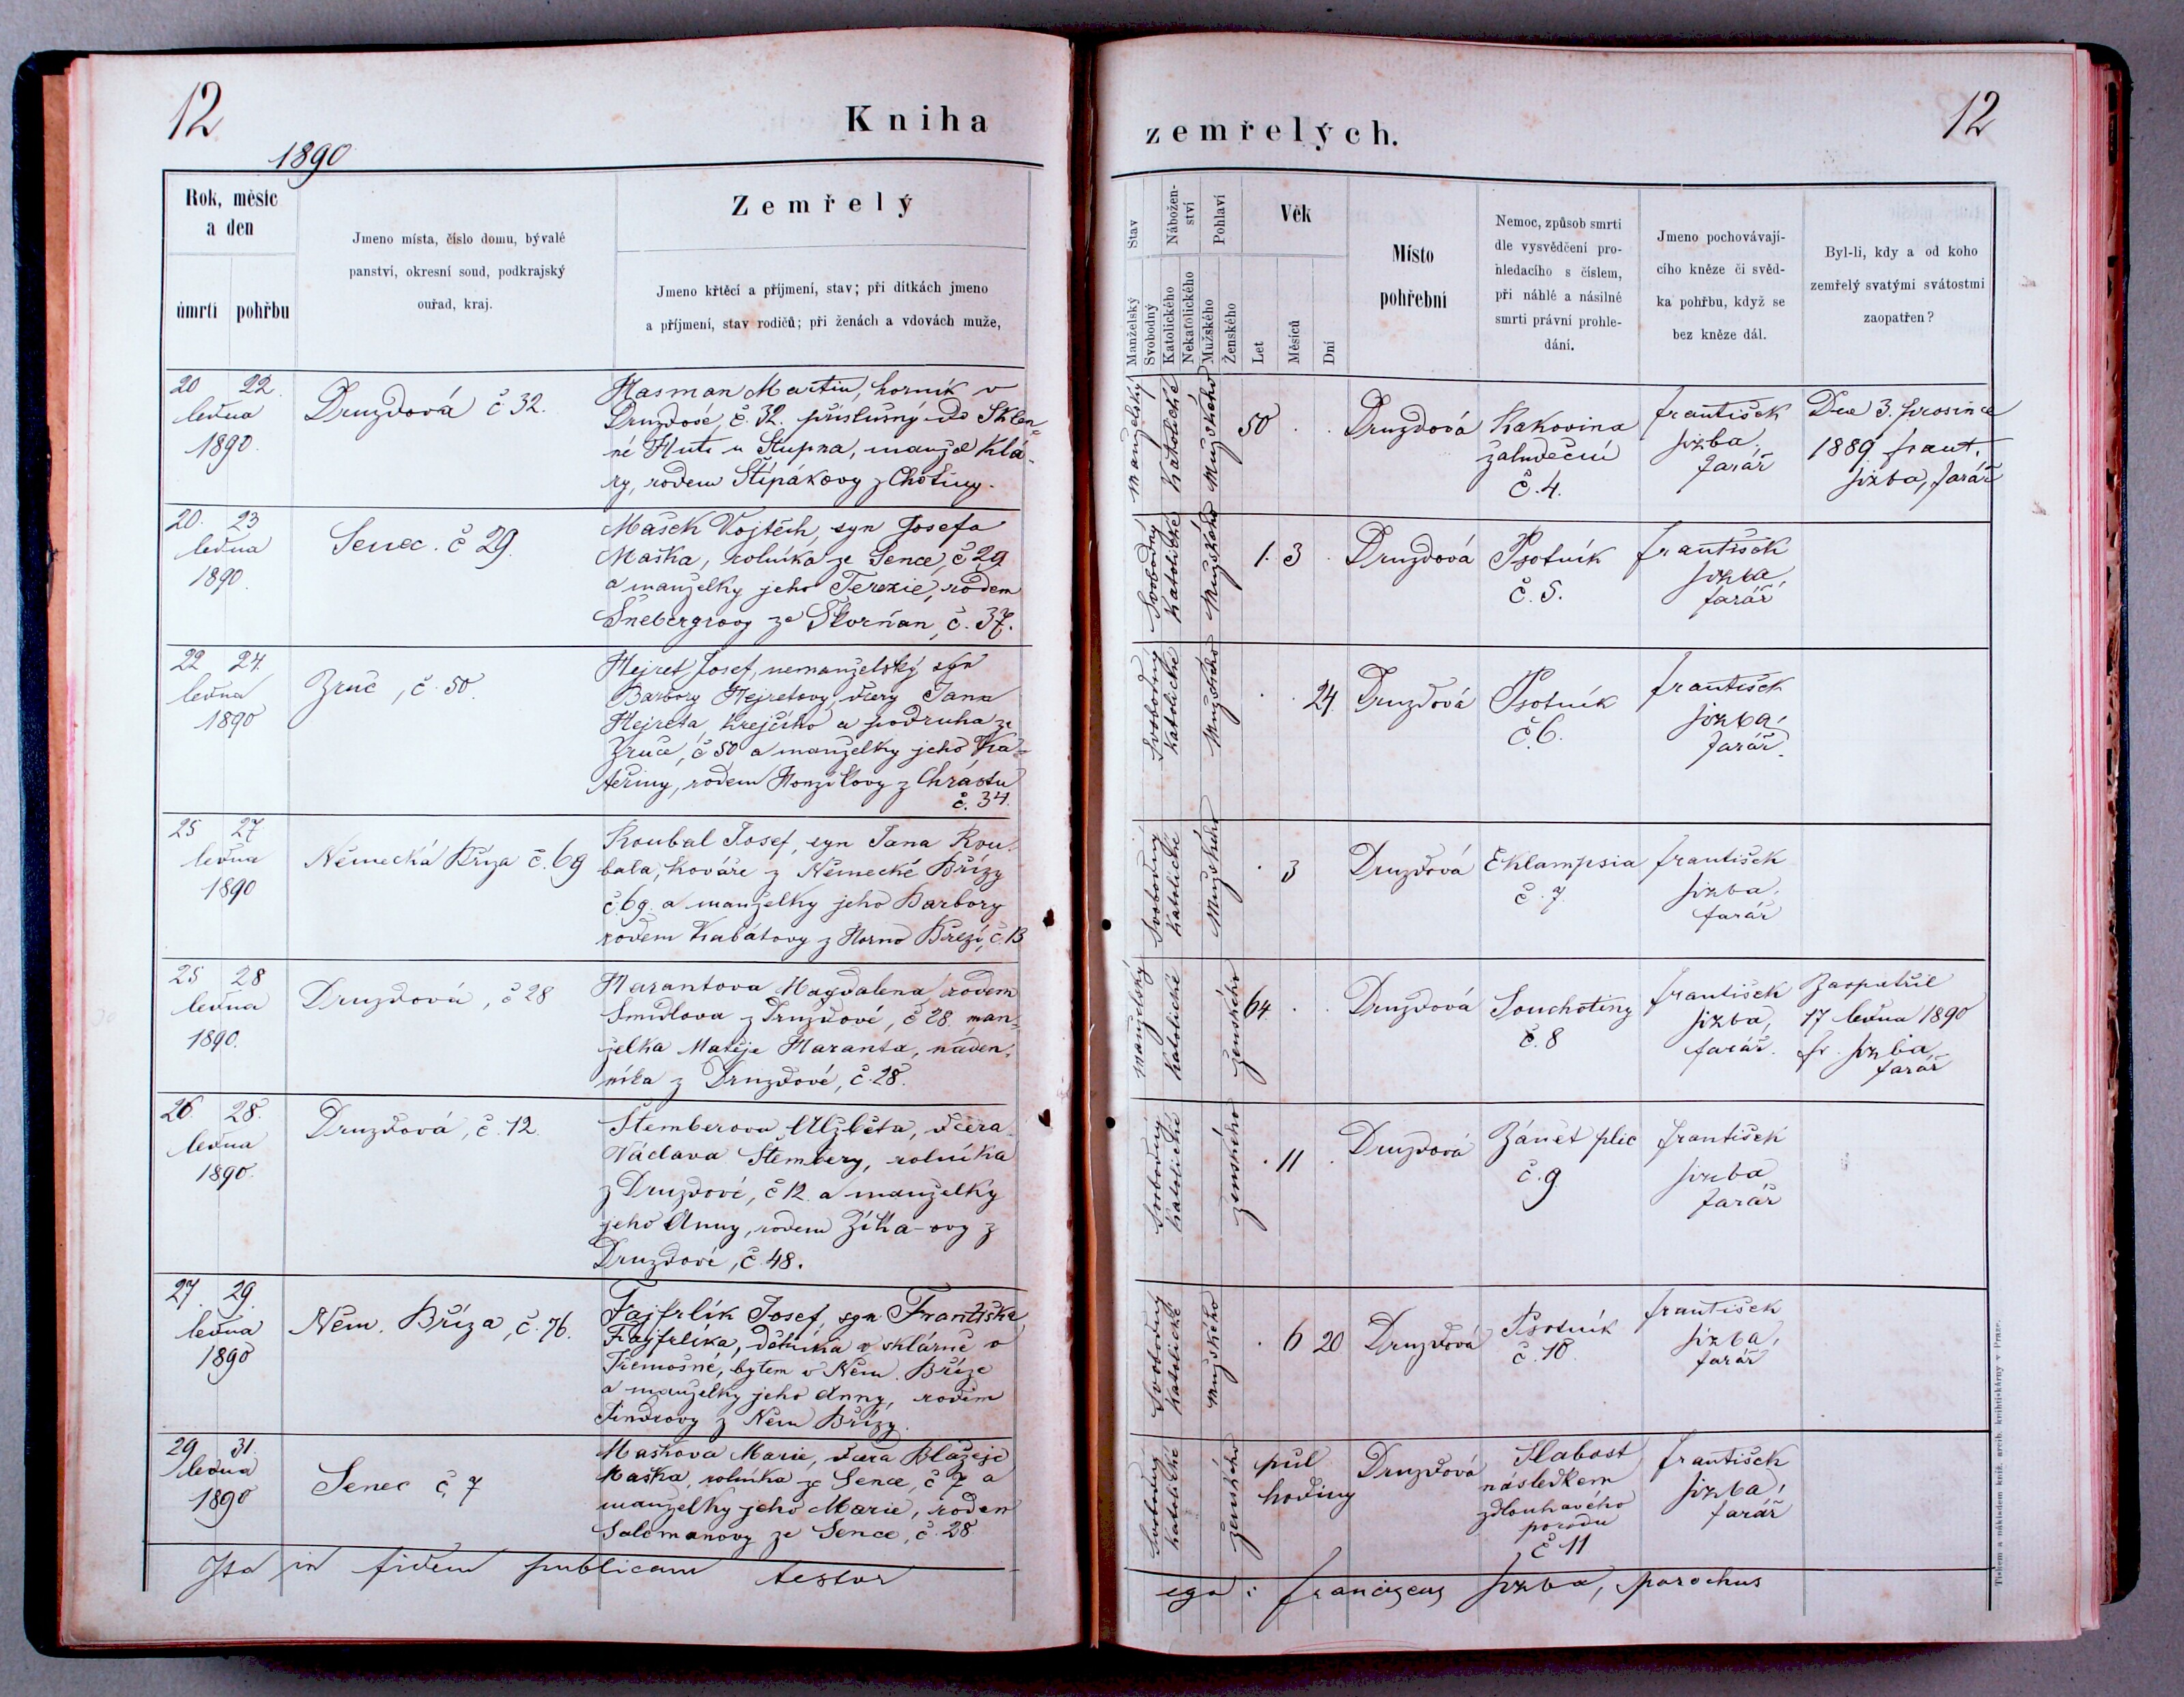 12
Kniha
1890
Rok, měsíc
a den
úmrtí pohřbu
Jmeno místa, číslo domu, bývalé
panství, okresní soud, podkrajský
ouřad, kraj.
Zemřelý
Jmeno křtěcí a příjmení, stav; při dítkách jmeno
a příjmení, stav rodičů; při ženách a vdovách muže,
20 22.
ledna
1890.
Druzdová č 32.
Hasman Martin, horník v
Druzdové, č. 32. příslušný do Sklen-
né Huti u Stupna, manžel Klá-
ry, rodem Štípákovy z Chotiny.
20. 23
ledna
1890.
Senec. č 29.
Mašek Vojtěch, syn Josefa
Maška, rolníka ze Sence, č 29
a manželky jeho Terezie, rodem
Šnebergrovy ze Škorňan, č. 37.
22 24.
ledna
1890
Zruč, č. 50.
Hejret Josef, nemanželský syn
Barbory Hejretovy, dcery Jana
Hejreta, krejčího a podruha ze
Zruče, č 50 a manželky jeho Ka-
teřiny, rodem Honzíkovy z Chrástu
č. 34.
25 27
ledna
1890
Německá Bříza č. 69
Koubal Josef, syn Jana Kou-
bala, kováře z Německé Břízy
č. 69. a manželky jeho Barbory
rodem Kabátovy z Horno Březí, č. 13
25 28
ledna
1890.
Druzdová, č 28
Harantova Magdalena rodem
Šmídlova z Druzdové, č 28. man-
želka Matěje Haranta, náden-
níka z Druzdové, č. 28.
26. 28.
ledna
1890.
Druzdová, č. 12.
Štemberova Alžběta, dcera
Václava Štembery, rolníka
z Druzdové, č 12. a manželky
jeho Anny, rodem Zíka-ovy z
Druzdové, č. 48.
27. 29.
ledna
1890
Něm. Bříza, č. 76.
Fajfrlík Josef, syn Františka
Fajfrlíka, dělníka v sklárně v
Třemošné, bytem v Něm. Bříze
a manželky jeho Anny, rodem
Jindrovy z Něm Břízy.
29 31.
ledna
1890
Senec č. 7
Maškova Marie, dcera Blažeje
Maška, rolníka ze Sence, č 7 a
manželky jeho Marie, rodem
Salomanovy ze Sence, č. 28
Ita in fidem publicam testor
12
zemřelých.
Stav
Manželský
Svobodný
Nábožen-
ství
Katolického
Nekatolického
Pohlaví
Mužského
Ženského
Věk
Let
Měsíců
Dní
Místo
pohřební
Nemoc, způsob smrti
dle vysvědčení pro-
hledacího s číslem,
při náhlé a násilné
smrti právní prohle-
dání.
Jmeno pochovávají-
cího kněze či svěd-
ka pohřbu, když se
bez kněze dál.
Byl-li, kdy a od koho
zemřelý svatými svátostmi
zaopatřen?
manželský Katolické Mužského 50 . . Druzdová
Rakovina
žaludeční
č. 4.
František
farář
Dne 3. prosince
1889 Frant.
farář
Svobodný Katolické Mužského 1. 3 . Druzdová
Psotník
č. 5.
František
farář
Svobodný Katolické Mužského . . 24 Druzdová
Psotník
č. 6.
František
farář.
Svobodný Katolické Mužského . 3 Druzdová
Eklampsia
č. 7.
František
farář
manželský Katolické ženského 64 . . Druzdová
Souchotiny
č. 8
František
farář.
Zaopatřil
17 ledna 1890
Fr.
farář
Svobodný Katolické ženského . 11 . Druzdová
Zánět plic
č. 9
František
farář
Svobodný Katolické Mužského . 6 20 Druzdová
Psotník
č. 10.
František
farář
Svobodný Katolické ženského
půl
hodiny
Druzdová
Slabost
následkem
zdlouhavého
porodu
č 11
František
farář
ego: Franciscus parochus
Tiskem a nákladem kníž. arcib. knihtiskárny v Praze.